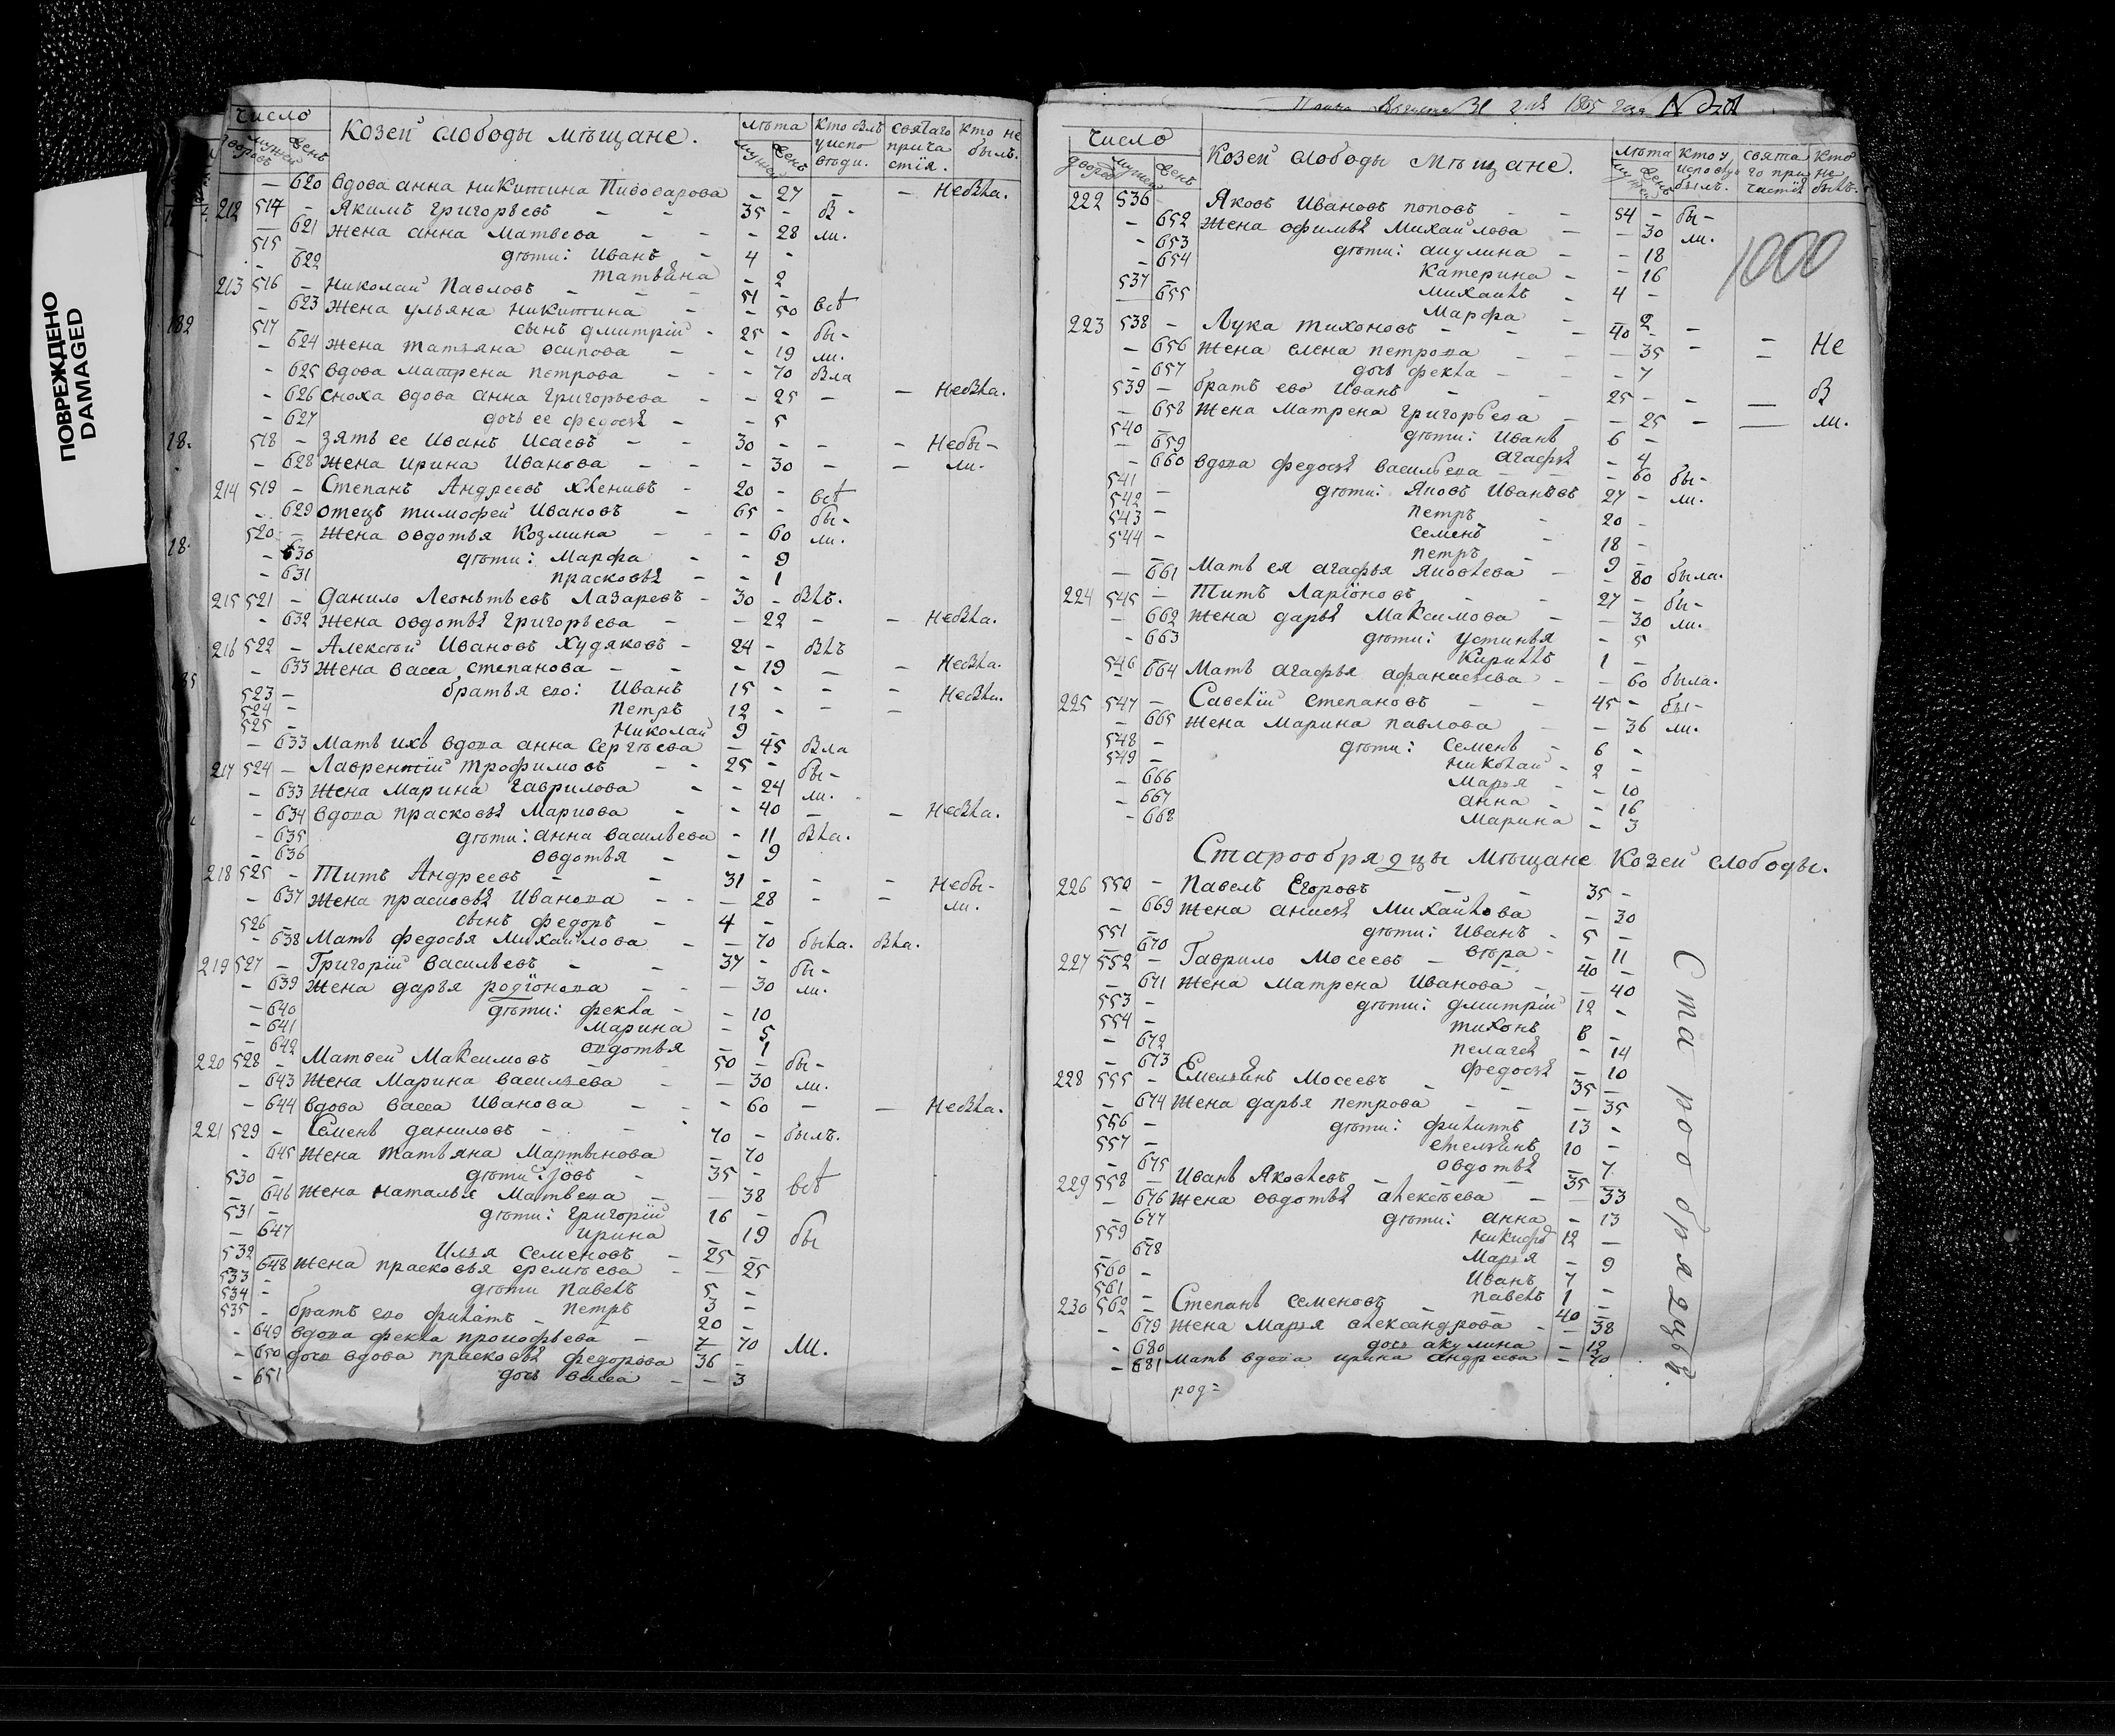 ПОВРЕЖДЕНО
DAMAGED
число
дворовъ мужей женъ
Козей слободы мѣщане.
лѣта
мужей женъ
Кто былъ у испо вѣди.
святаго прича стія.
Кто не былъ.
— 620 вдова анна никитина Пивоварова — 27 — — Небыла.
212 514 — Якимъ Григорьевъ — — 35 — бы-
— 621 жена анна Матвѣева — — 28 ли.
515 — дѣти: Иванъ — 4 —
— 622 татьяна — 2
213 516 — Николай Павловъ — — 51 —
— 623 жена ульяна никитина — — 50 всѣ
517 сынъ дмитрій — 25 — бы-
— 624 жена татьяна осипова — — 19 ли.
— 625 вдова матрена петрова — — 70 была
— 626 сноха вдова анна григорьева — — 25 — — Небыла.
— 627 дочь ее федосья — — 5
518 — зять ее Иванъ Исаевъ — — 30 — — — Небы-
— 628 жена ирина Иванова — — — 30 — — ли.
214 519 — Степанъ Андреевъ — 20 — всѣ
— 629 отецъ тимофей Ивановъ — 65 — бы-
520 — жена овдотья Козмина — — 60 ли.
— 630 дѣти: Марфа — — 9
— 631 прасковья — — 1
215 521 — Данило Леонтьевъ Лазаревъ — 30 — былъ.
— 632 жена овдотья григорьева — — 22 — — Небыла.
216 522 — Алексѣй Ивановъ Худяковъ — 24 — былъ
— 633 жена васса степанова — — — 19 — — Небыла.
523 — братья его: Иванъ 15 — — — Небыла.
524 — петръ 12 — — —
525 — Николай 9 —
— 633 Мать ихъ вдова анна сергѣева — 45 была
217 524 — Лаврентій трофимовъ — — 25 — бы-
— 633 жена Марина гаврилова — — 24 ли.
— 634 вдова прасковья Маркова — — 40 — — Небыла.
— 635 дѣти: анна васильева — 11 была.
— 636 овдотья — — 9
218 525 — Титъ Андреевъ — — 31 — — — Небы-
— 637 жена прасковья Иванова — — — 28 — — ли.
526 — сынъ федоръ — 4 —
— 638 Мать федосья Михайлова — — 70 была. была.
219 527 — Григорій васильевъ — — 37 — бы-
— 639 жена дарья родіонова — — — 30 ли.
— 640 дѣти: фекла — — 10
— 641 Марина — 5
— 642 овдотья — 1
220 528 — Матвей Максимовъ — 50 — бы-
— 643 жена Марина васильева — — 30 ли.
— 644 вдова васса Иванова — — — 60 — — Небыла.
221 529 — Семенъ даниловъ — — 70 — былъ.
— 645 жена татьяна Мартынова — 70
530 — дѣти: Іовъ — 35 —
— 646 жена наталья Матвеева — — 38 всѣ
531 — дѣти: григорій 16 —
— 647 ирина — 19 бы
532 — Илья Семеновъ — 25 —
— 648 жена прасковья еремѣева — — 25
533 — дѣти павелъ 5 —
534 — петръ 3 —
535 — братъ его филатъ — 20 —
— 649 вдова фекла прокофьева — — 70 ли.
— 650 дочь вдова прасковья федорова 36 —
— 651 дочь васса — — 3
182
18.
18.
35
31 1865 года
число
дворовъ мужей женъ
Козей слободы мѣщане.
лѣта
мужей женъ
кто у исповѣди былъ.
свята го при частія
Кто не былъ.
1000
222 536 Яковъ Ивановъ поповъ — — 54 — бы-
— 652 жена офимья Михайлова — — 30 ли.
— 653 дѣти: акулина — — 18
— 654 катерина — — 16
537 — михайлъ — 4 —
— 655 Марфа — — 2
223 538 — Лука тихоновъ — — — 40 — — — Не
— 656 жена елена петрова — — — 35 — —
— 657 дочь фекла — — — 7
539 — братъ его Иванъ — — 25 — — — бы
— 658 жена матрена григорьева — — 25 — — ли.
540 — дѣти: Иванъ 6 —
— 659 агафья — 4
— 660 вдова федосья васильева — — 60 бы-
541 — дѣти: Яковъ Ивановъ 27 — ли.
542 — петръ 20 —
543 — семенъ — 18 —
544 — петръ — 9 —
— 661 Мать ея агафья Яковлева — — 80 была.
224 545 — Титъ Ларіоновъ — — 27 — бы-
— 662 жена дарья Максимова — — 30 ли.
— 663 дѣти: устинья — 5
546 — кириллъ 1 —
— 664 Мать агафья афанасьева — — 60 была.
225 547 — Савелій степановъ — — 45 — бы-
— 665 жена марина павлова — — 36 ли.
548 — дѣти: семенъ — 6 —
549 — николай — 2 —
— 666 Марья — — 10
— 667 анна — — 16
— 668 Марина — — 3
Старообрядцы мѣщане Козей слободы.
226 550 — Павелъ Егоровъ — — 35 —
— 669 жена анисья Михайлова — 30
551 — дѣти: Иванъ — 5 —
— 670 вѣра — — 11
227 552 — Гаврило Мосеевъ — — 40 —
— 671 жена матрена Иванова — — 40
553 — дѣти: дмитрій 12 —
554 — тихонъ 8 —
— 672 пелагея — 14
— 673 федосья — 10
228 555 — Емельянъ Мосеевъ — — 35 —
— 674 жена дарья петрова — — — 35
556 — дѣти: филиппъ 13 —
557 — емельянъ 10 —
— 675 овдотья — 7
229 558 — Иванъ Яковлевъ — — 35 —
— 676 жена овдотья алексѣева — — 33
— 677 дѣти: анна — 13
559 — никифоръ 12 —
— 678 Марья — 9
560 — Иванъ 7
561 — павелъ 1 —
230 562 — Степанъ семеновъ — — 40 —
— 679 жена марья александрова — — 38
— 680 дочь акулина — 12
— 681 мать вдова ирина андреева — 70
род=
Старообрядцы.